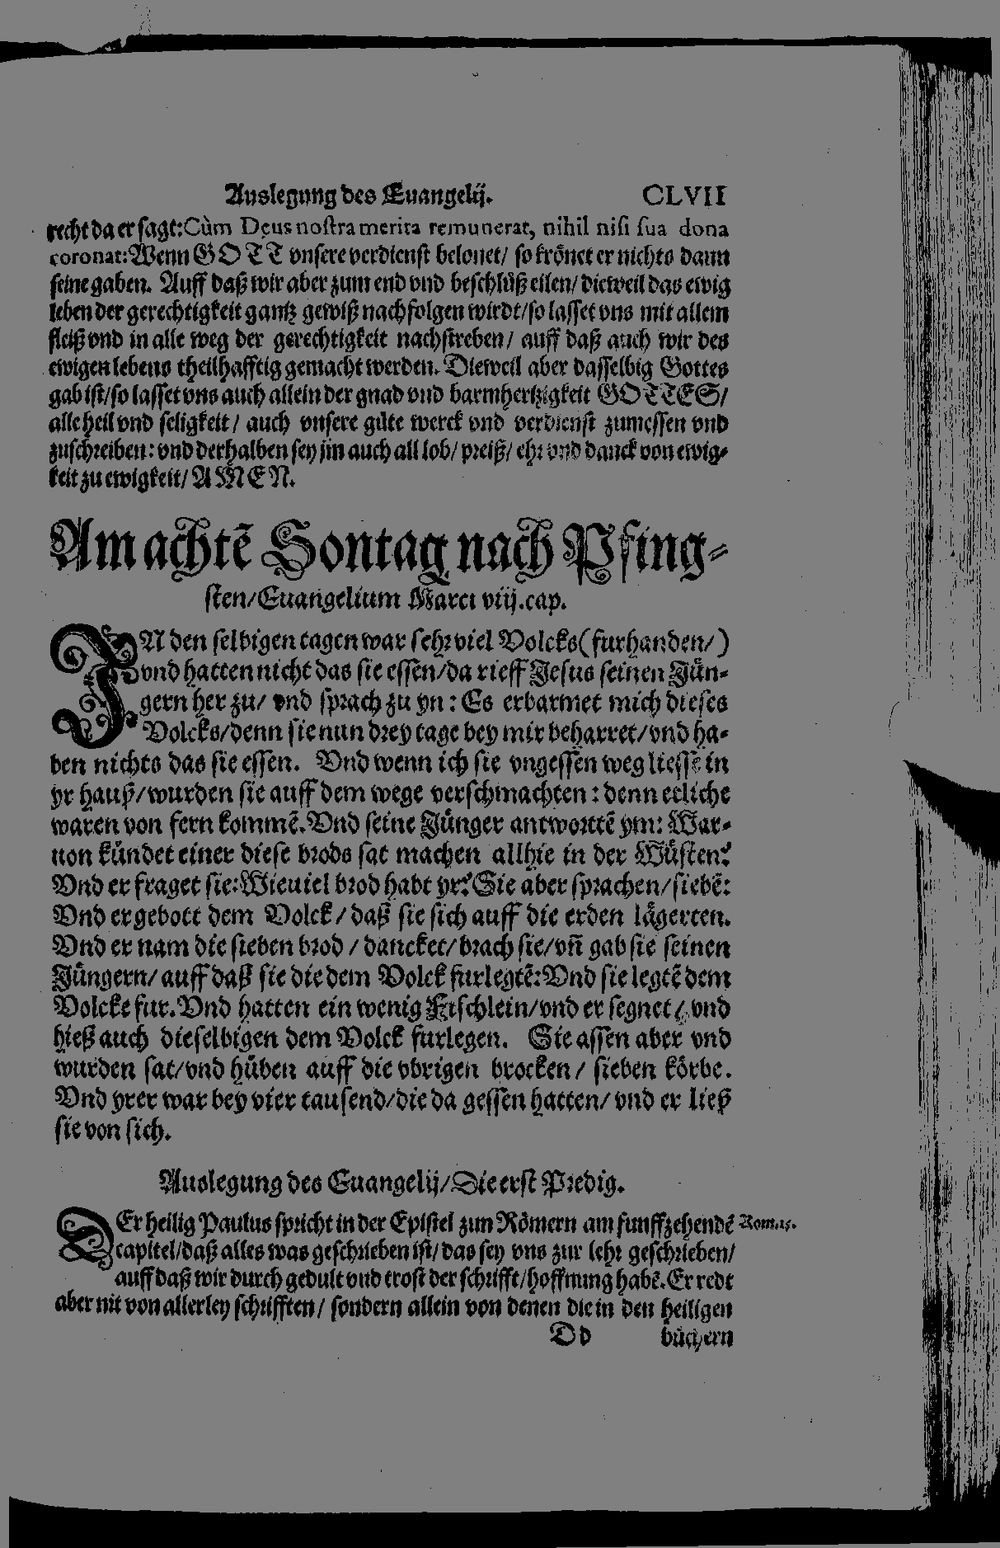 Auslegung des Euangelij. CLVII
recht da er sagt: Cùm Deus nostra merita remunerat, nihil nisi sua dona
coronat: Wenn GOTT vnsere verdienst belonet/ so krönet er nichts dann
seine gaben. Auff daß wir aber zum end vnd beschlüß eilen/ dieweil das ewig
leben der gerechtigkeit gantz gewiß nachfolgen wirdt/ so lasset vns mit allem
fleiß vnd in alle weg der gerechtigkeit nachstreben/ auff daß auch wir des
ewigen lebens theilhafftig gemacht werden. Dieweil aber dasselbig Gottes
gab ist/ so lasset vns auch allein der gnad vnd barmhertzigkeit GOTTES/
alle heil vnd seligkeit/ auch vnsere güte werck vnd verdienst zumessen vnd
zuschreiben: vnd derhalben sey jm auch all lob/ preiß/ ehr vnd danck von ewig-
keit zu ewigkeit/ AMEN.
Am achtē Sontag nach Pfing-
sten/ Euangelium Marci viij. cap.
IN den selbigen tagen war sehr viel Volcks (furhanden/)
vnd hatten nicht das sie essen/ da rieff Jesus seinen Jün-
gern her zu/ vnd sprach zu yn: Es erbarmet mich dieses
Volcks/ denn sie nun drey tage bey mir beharret/ vnd ha-
ben nichts das sie essen. Vnd wenn ich sie vngessen weg liesse in
yr hauß/ wurden sie auff dem wege verschmachten: denn etliche
waren von fern kommē. Vnd seine Jünger antwortē ym: War-
uon kündet einer diese brods sat machen allhie in der Wüsten?
Vnd er fraget sie: Wieuiel brod habt yr? Sie aber sprachen/ siebē:
Vnd er gebott dem Volck/ daß sie sich auff die erden lägerten.
Vnd er nam die sieben brod/ dancket/ brach sie/ vñ gab sie seinen
Jüngern/ auff daß sie die dem Volck furlegtē: Vnd sie legtē dem
Volcke fur. Vnd hatten ein wenig Fischlein/ vnd er segnet/ vnd
hieß auch dieselbigen dem Volck furlegen. Sie assen aber vnd
wurden sat/ vnd hüben auff die vbrigen brocken/ sieben körbe.
Vnd yrer war bey vier tausend/ die da gessen hatten/ vnd er ließ
sie von sich.
Auslegung des Euangelij/ Die erst Predig.
DEr heilig Paulus spricht in der Epistel zun Römern am funffzehendē
capitel/ daß alles was geschrieben ist/ das sey vns zur lehr geschrieben/
auff daß wir durch gedult vnd trost der schrifft/ hoffnung habē. Er redt
aber nit von allerley schrifften/ sondern allein von denen die in den heiligen
Dd büchern